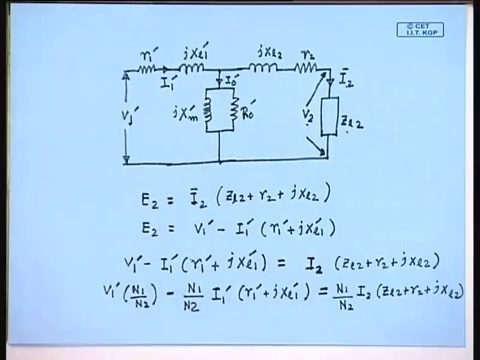 © CET
I.I.T. KGP
r₁' jXl₁' jXl₂ r₂
I₁' I₀' Ī₂
V₁' jXm' R₀' V₂ Zl₂
E₂ = Ī₂ (Zl₂ + r₂ + jXl₂)
E₂ = V₁' - I₁' (r₁' + jXl₁')
V₁' - I₁' (r₁' + jXl₁') = I₂ (Zl₂ + r₂ + jXl₂)
V₁' (N₁/N₂) - N₁/N₂ I₁' (r₁' + jXl₁') = N₁/N₂ I₂ (Zl₂ + r₂ + jXl₂)